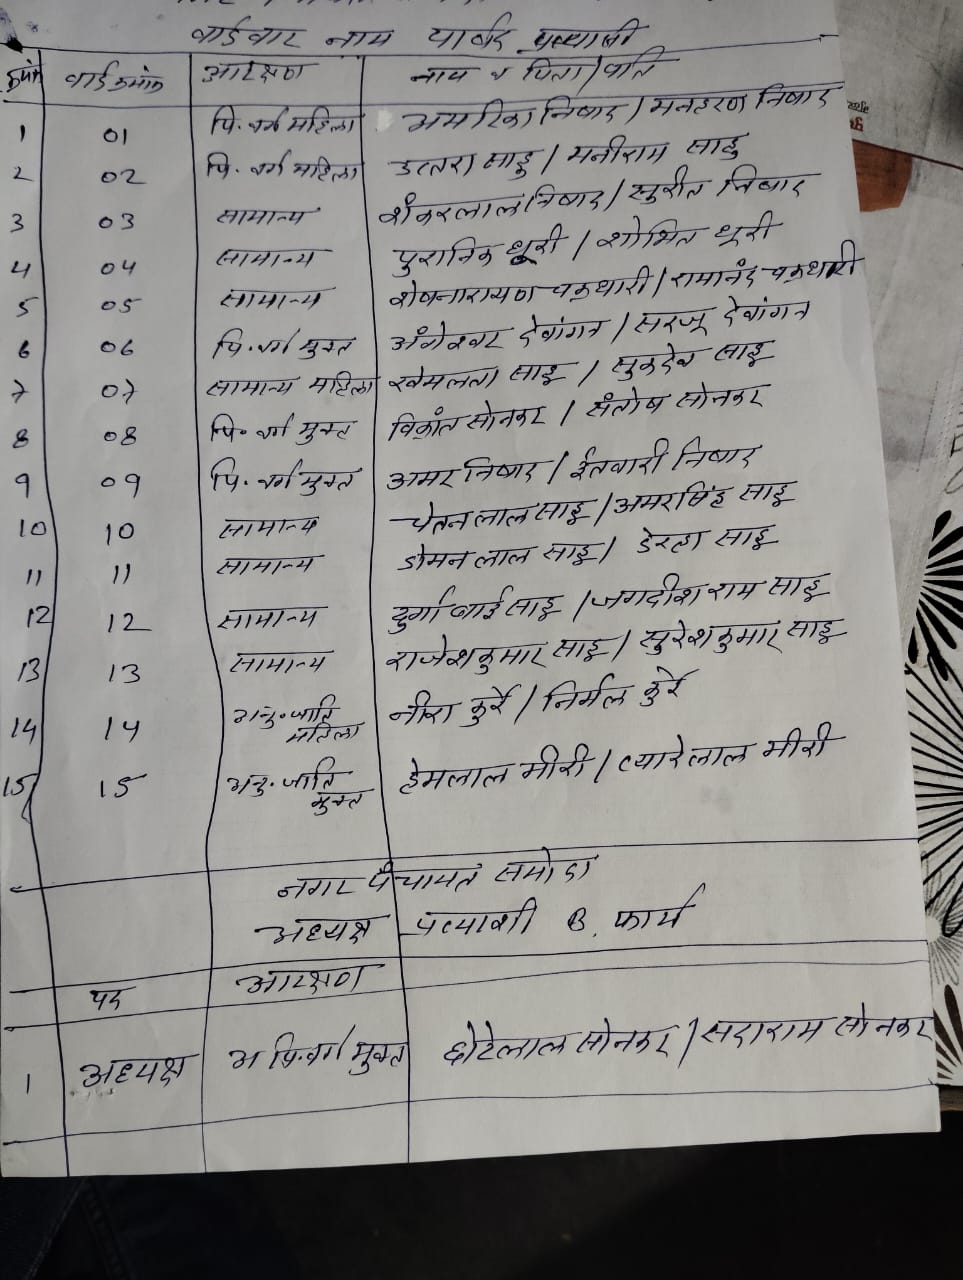 वार्डवार नाम पार्षद प्रत्याशी
क्रमांक वार्ड क्रमांक आरक्षण नाम व पिता/पति
1 01 पि. वर्ग महिला अमरिका निषाद / मनहरण निषाद
2 02 पि. वर्ग महिला उत्तरा साहू / मनीराम साहू
3 03 सामान्य शंकरलाल निषाद / सुरीत निषाद
4 04 सामान्य पुरानिक धूरी / शोभित धूरी
5 05 सामान्य शेषनारायण चक्रधारी / रामानंद चक्रधारी
6 06 पि. वर्ग मुक्त अंगेश्वर देवांगन / सरजू देवांगन
7 07 सामान्य महिला खेमलता साहू / सुकदेव साहू
8 08 पि. वर्ग मुक्त विक्रांत सोनकर / संतोष सोनकर
9 09 पि. वर्ग मुक्त अमर निषाद / ईतवारी निषाद
10 10 सामान्य चेतन लाल साहू / अमरसिंह साहू
11 11 सामान्य डोमन लाल साहू / डेरहा साहू
12 12 सामान्य दुर्गा बाई साहू / जगदीश राम साहू
13 13 सामान्य राजेश कुमार साहू / सुरेश कुमार साहू
14 14 अनु. जाति महिला नीरा कुर्रे / निर्मल कुर्रे
15 15 अनु. जाति मुक्त हेमलाल मीरी / प्यारेलाल मीरी
नगर पंचायत समोदा
अध्यक्ष प्रत्याशी B. फार्म
पद आरक्षण
1 अध्यक्ष अ पि. वर्ग मुक्त छोटेलाल सोनकर / सदाराम सोनकर